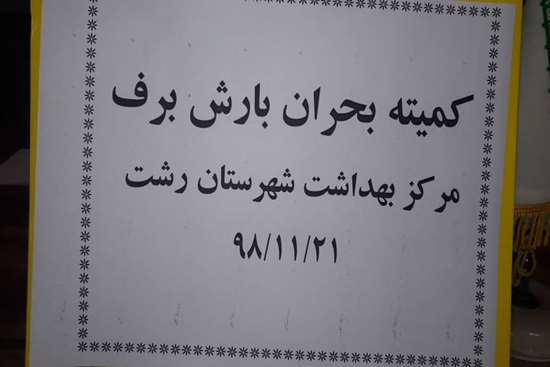 کمیته بحران بارش برف
مرکز بهداشت شهرستان رشت
۹۸/۱۱/۲۱